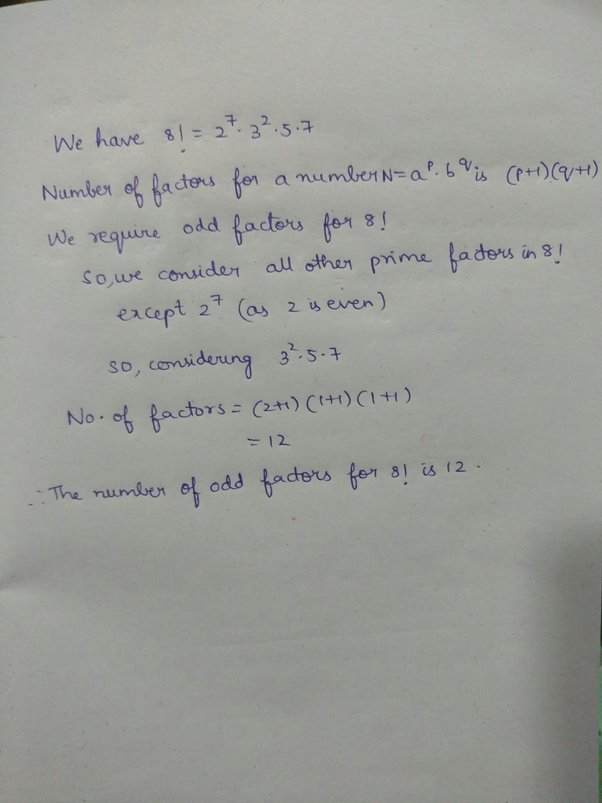 We have 8! = 2⁷. 3². 5. 7
Number of factors for a number N= aᵖ. b^q is (p+1)(q+1)
We require odd factors for 8!
So, we consider all other prime factors in 8!
except 2⁷ (as 2 is even)
so, considering 3². 5. 7
No. of factors = (2+1) (1+1) (1+1)
= 12
∴ The number of odd factors for 8! is 12.